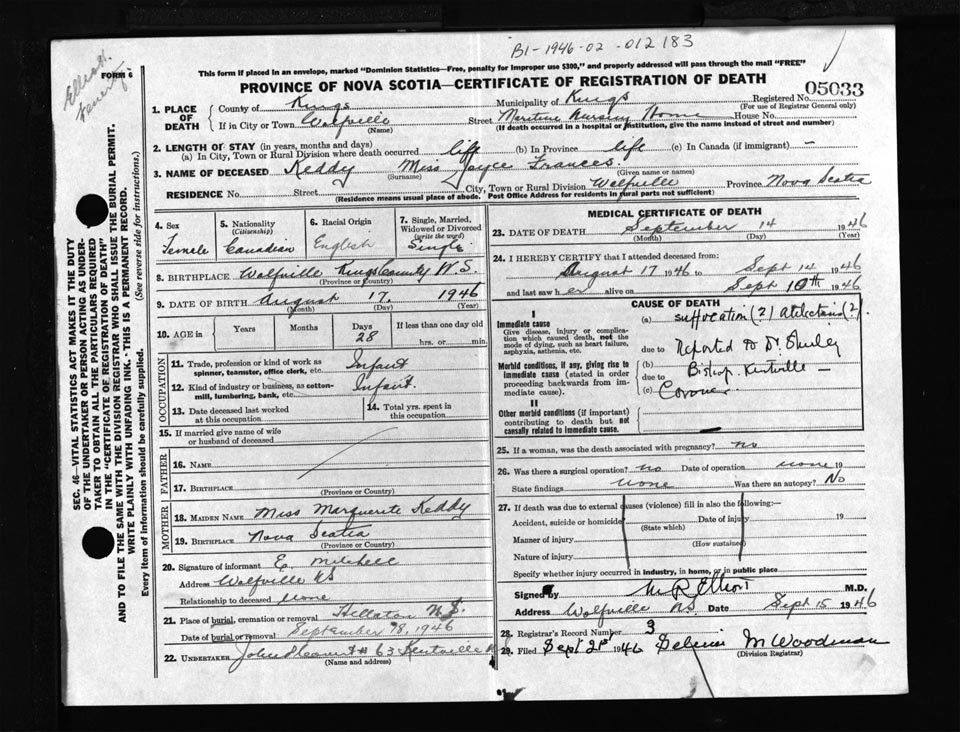 B1-1946-02-012183
Elliott
FORM 6
This form if placed in an envelope, marked "Dominion Statistics—Free, penalty for improper use $300," and properly addressed will pass through the mail "FREE"
PROVINCE OF NOVA SCOTIA—CERTIFICATE OF REGISTRATION OF DEATH
Registered No. 05033
(For use of Registrar General only)
1. PLACE OF DEATH
County of Kings Municipality of Kings
If in City or Town Wolfville Street Maritime Nursing Home House No.
(Name) (If death occurred in a hospital or institution, give the name instead of street and number)
2. LENGTH OF STAY (in years, months and days)
(a) In City, Town or Rural Division where death occurred life (b) In Province life (c) In Canada (if immigrant) —
3. NAME OF DECEASED Keddy Miss Joyce Frances
(Surname) (Given name or names)
RESIDENCE No. Street City, Town or Rural Division Wolfville Province Nova Scotia
(Residence means usual place of abode. Post Office Address for residents in rural parts not sufficient)
4. Sex Female
5. Nationality (Citizenship) Canadian
6. Racial Origin English
7. Single, Married, Widowed or Divorced (write the word) Single
8. BIRTHPLACE Wolfville Kings County N.S.
(Province or Country)
9. DATE OF BIRTH August 17, 1946
(Month) (Day) (Year)
10. AGE in Years Months Days 28 If less than one day old hrs. or min.
OCCUPATION
11. Trade, profession or kind of work as spinner, teamster, office clerk, etc. Infant
12. Kind of industry or business, as cotton-mill, lumbering, bank, etc. Infant.
13. Date deceased last worked at this occupation
14. Total yrs. spent in this occupation
15. If married give name of wife or husband of deceased
FATHER
16. NAME
17. BIRTHPLACE
(Province or Country)
MOTHER
18. MAIDEN NAME Miss Marguerite Keddy
19. BIRTHPLACE Nova Scotia
(Province or Country)
20. Signature of informant E. Mitchell
Address Wolfville NS
Relationship to deceased none
21. Place of burial, cremation or removal Hillaton N.S.
Date of burial or removal September 1946
22. UNDERTAKER # 63 Kentville
(Name and address)
MEDICAL CERTIFICATE OF DEATH
23. DATE OF DEATH September 14 1946
(Month) (Day) (Year)
24. I HEREBY CERTIFY that I attended deceased from:
August 17 1946 to Sept 14 1946
and last saw h er alive on Sept 10th 1946
CAUSE OF DEATH
I
Immediate cause
Give disease, injury or complication which caused death, not the mode of dying, such as heart failure, asphyxia, asthenia, etc.
(a) suffocation (?) atelectasis (?)
due to Reported to Dr.
Morbid conditions, if any, giving rise to immediate cause (stated in order proceeding backwards from immediate cause).
(b) Bishop Kentville —
due to
(c) Coroner
II
Other morbid conditions (if important) contributing to death but not causally related to immediate cause.
25. If a woman, was the death associated with pregnancy? no
26. Was there a surgical operation? no Date of operation none 19
State findings none Was there an autopsy? No
27. If death was due to external causes (violence) fill in also the following:—
Accident, suicide or homicide Date of injury 19
(State which)
Manner of injury
(How sustained)
Nature of injury
Specify whether injury occurred in industry, in home, or in public place
Signed by M R Elliott M.D.
Address Wolfville NS Date Sept 15 1946
28. Registrar's Record Number 3
29. Filed Sept 21st 1946 M Woodman
(Division Registrar)
SEC. 46—VITAL STATISTICS ACT MAKES IT THE DUTY
OF THE UNDERTAKER OR PERSON ACTING AS UNDERTAKER TO OBTAIN ALL THE PARTICULARS REQUIRED
IN THE "CERTIFICATE OF REGISTRATION OF DEATH"
AND TO FILE THE SAME WITH THE DIVISION REGISTRAR WHO SHALL ISSUE THE BURIAL PERMIT.
WRITE PLAINLY WITH UNFADING INK.—THIS IS A PERMANENT RECORD.
Every item of information should be carefully supplied. (See reverse side for instructions.)